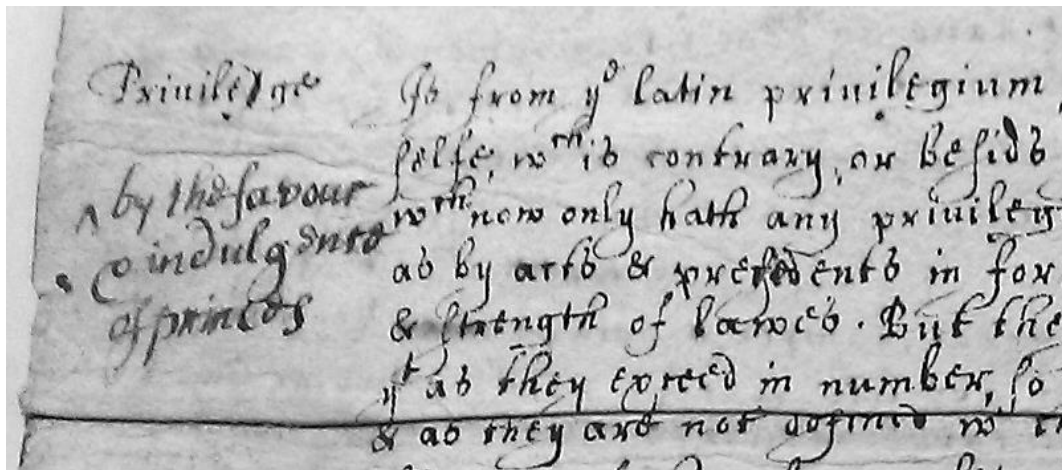 Priuiledge
^ by the favour
& indulgence
of princes
Is from yᵉ latin priuilegium
selfe, wᶜʰ is contrary, or besids
wᶜʰ now only hath any priuileg
as by acts & presedents in for
& strength of lawes. But the
yᵗ as they exceed in number, so
& as they are not defined w